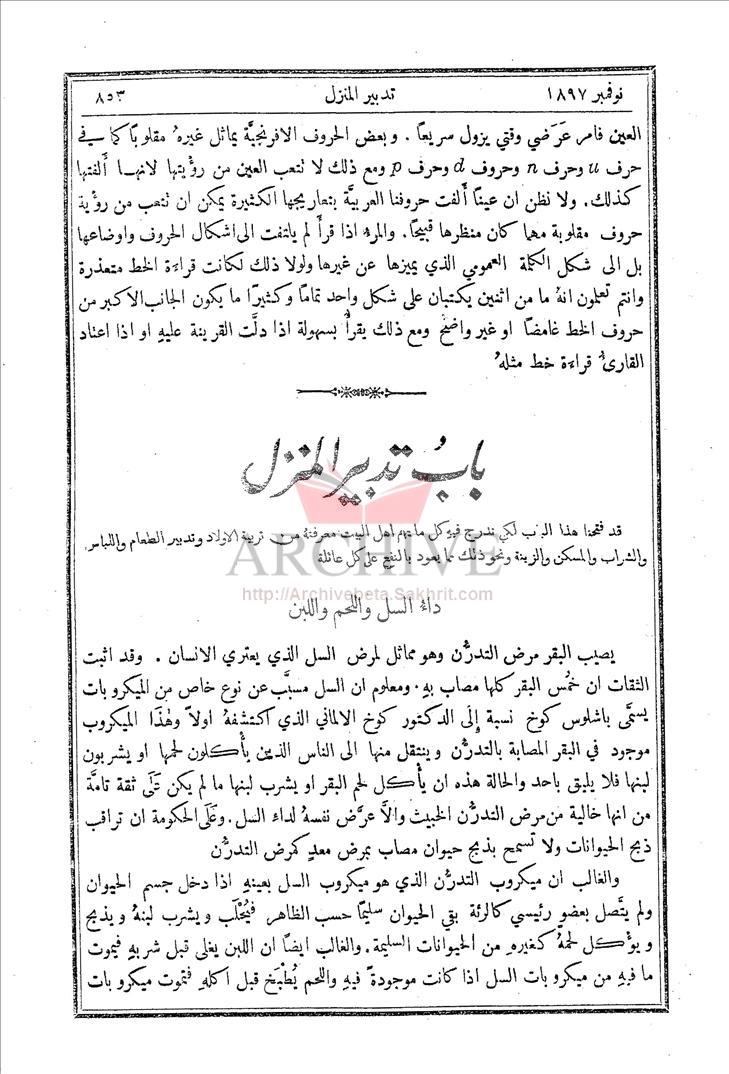 نوفمبر ١٨٩٧ تدبير المنزل ٨٥٣
العين فامر عَرَضي وقتي يزول سريعاً . وبعض الحروف الافرنجيَّة يماثل غيره مقلوباً كما في
حرف u وحرف n وحروف d وحرف p ومع ذلك لا تتعب العين من رؤيتها لانها أَلفتها
كذلك. ولا نظن ان عيناً أَلفت حروفنا العربيَّة بتعاريجها الكثيرة يمكن ان تتعب من رؤية
حروف مقلوبة مهما كان منظرها قبيحاً. والمرء اذا قرأَ لم يلتفت الى اشكال الحروف واوضاعها
بل الى شكل الكلمة العمومي الذي يميزها عن غيرها ولولا ذلك لكانت قراءة الخط متعذرة
وانتم تعلمون انهُ ما من اثنين يكتبان على شكل واحد تماماً وكثيراً ما يكون الجانب الاكبر من
حروف الخط غامضاً او غير واضح ومع ذلك يقرأُ بسهولة اذا دلَّت القرينة عليهِ او اذا اعتاد
القارئُ قراءة خط مثلهُ
بابُ تدبير المنزل
قد فتحنا هذا الباب لكي ندرج فيهِ كل ما يهم اهل البيت معرفتهُ من تربية الاولاد وتدبير الطعام واللباس
والشراب والمسكن والزينة ونحو ذلك مما يعود بالنفع على كل عائلة
ARCHIVE
http://Archivebeta.Sakhrit.com
داءُ السل واللحم واللبن
يصيب البقر مرض التدرُّن وهو مماثل لمرض السل الذي يعتري الانسان . وقد اثبت
الثقات ان خُمْس البقر كلها مصاب بهِ. ومعلوم ان السل مسبَّب عن نوع خاص من الميكروبات
يسمَّى باشلوس كوخ نسبة إِلى الدكتور كوخ الالماني الذي اكتشفهُ اولاً وهٰذا الميكروب
موجود في البقر المصابة بالتدرُّن وينتقل منها الى الناس الذين يأْكلون لحمها او يشربون
لبنها فلا يليق باحد والحالة هذه ان يأْكل لحم البقر او يشرب لبنها ما لم يكن عَلَى ثقة تامَّة
من انها خالية من مرض التدرُّن الخبيث والاَّ عرَّض نفسهُ لداء السل. وعَلَى الحكومة ان تراقب
ذبح الحيوانات ولا تسمح بذبح حيوان مصاب بمرض معدٍ كمرض التدرُّن
والغالب ان ميكروب التدرُّن الذي هو ميكروب السل بعينهِ اذا دخل جسم الحيوان
ولم يتَّصل بعضو رئيسي كالرئة بقي الحيوان سليماً حسب الظاهر فيُحْلَب ويشرب لبنهُ ويذبح
ويؤْكل لحمهُ كغيرهِ من الحيوانات السليمة. والغالب ايضاً ان اللبن يغلى قبل شربهِ فيموت
ما فيهِ من ميكروبات السل اذا كانت موجودةً فيهِ واللحم يُطْبَخ قبل اكلهِ فتموت ميكروبات